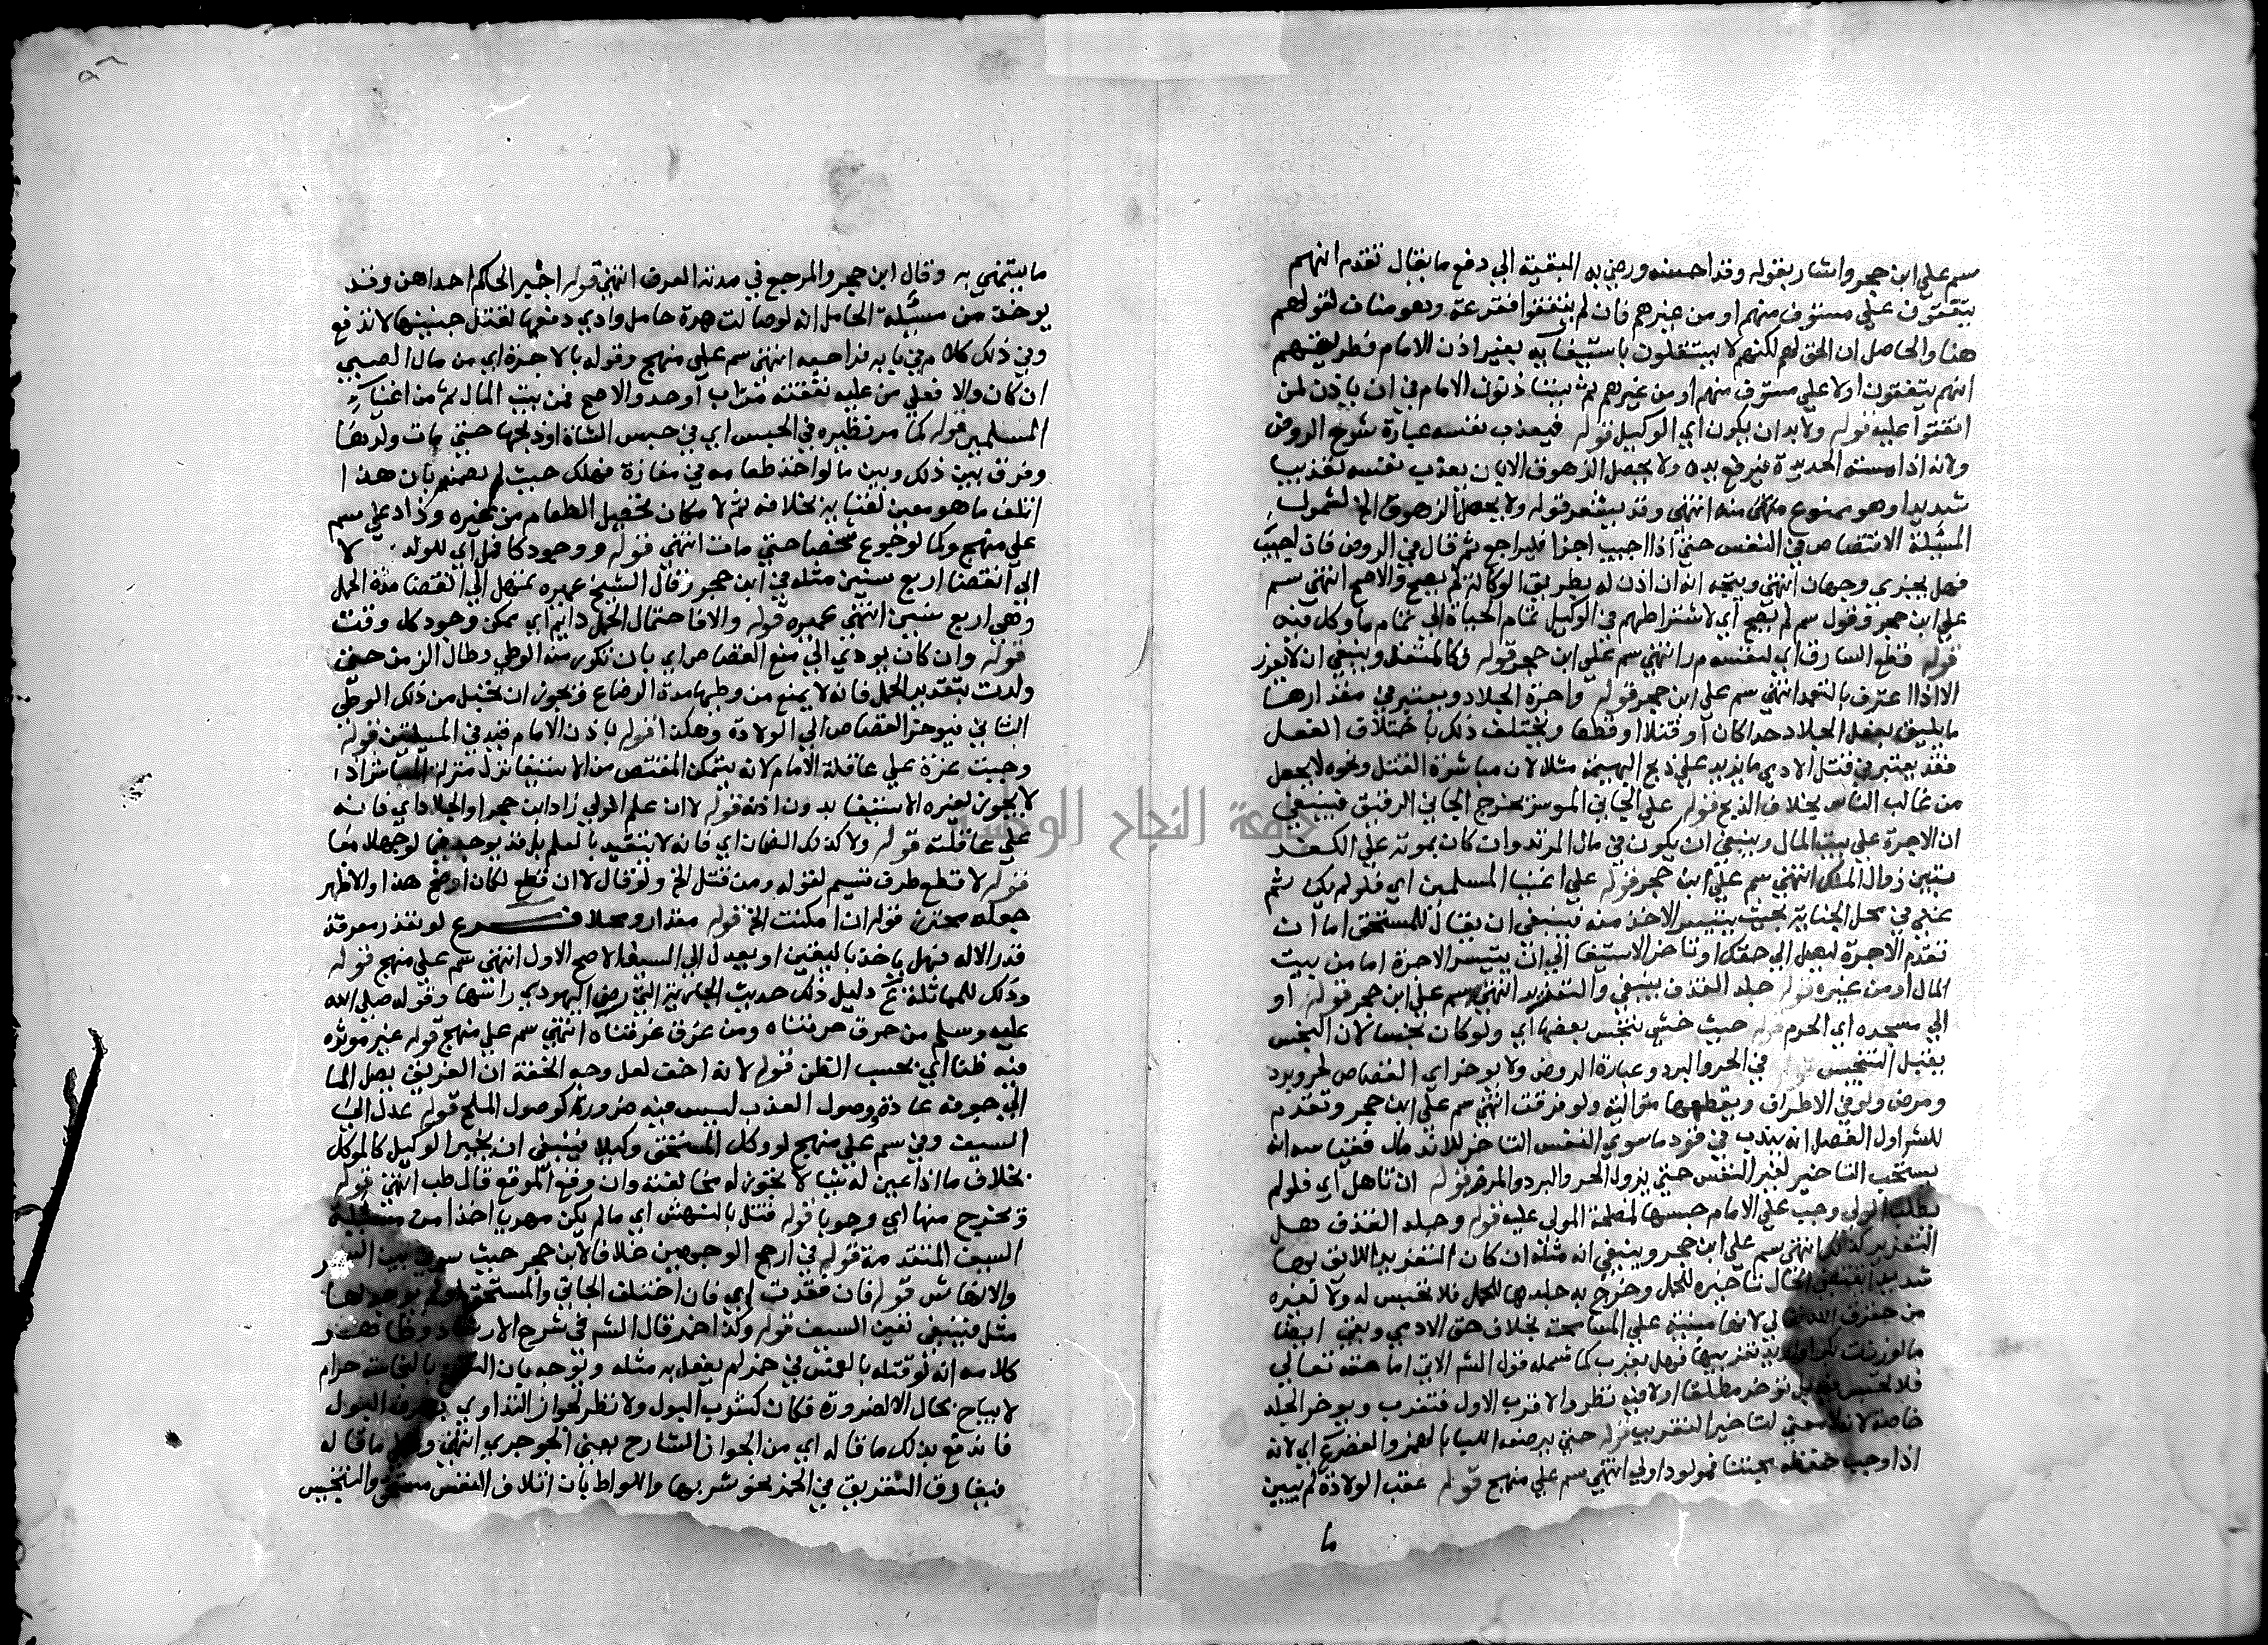 سم علي ابن حجر واشار بقوله وقد احسنه ورضي به البقية الي دفع ما يقال تقدم انهم
يتفقون علي مستوف منهم او من غيرهم فان لم يتفقوا فقرعة وهو مناف لقولهم
هنا والحاصل ان الحق لهم لكنهم لا يستقلون باستيفايه بغير اذن الامام فطريقهم
انهم يتفقون اولا علي مستوف منهم او من غيرهم ثم يستاذنون الامام في ان ياذن لمن
اتفقوا عليه قوله ولا بد ان يكون اي الوكيل قوله فيعذب نفسه عبارة شرح الروض
ولانه اذا مسته الحديدة فترفع يده ولا يحصل الزهوق الا بان يعذب نفسه تعذيبا
شديدا وهو ممنوع منه انتهي وقد يشعر قوله ولا يحصل الزهوق الخ لشمول
المسئلة الاقتصاص في النفس حتي اذا اجيب اجزا فليراجع ثم قال في الروض فان اجيب
فهل يجزي وجهان انتهي ويتجه انه ان اذن له بطريق الوكالة لم يصح والاصح انتهي سم
علي ابن حجر وقول سم لم يصح اي لاشتراطهم في الوكيل تمام الحياة الي تمام ما وكل فيه
قوله قطع السارق اي لنفسه م ر انتهي سم علي ابن حجر قوله وكالمثقل وينبغي ان لا يعزر
الا اذا اعترف بالتعمد انتهي سم علي ابن حجر قوله واجرة الجلاد ويعتبر في مقدارها
ما يليق بفعل الجلاد حدا كان او قتلا او قطعا ويختلف ذلك باختلاف الفعل
فقد يعتبر في قتل الادمي ما يزيد علي ذبح البهيمة مثلا لان مباشرة القتل ونحوه لا يحصل
من غالب الناس بخلاف الذبح قوله علي الجاني الموسر يخرج الجاني الرقيق فينبغي
ان الاجرة علي بيت المال وينبغي ان يكون في مال المرتد وان كان بموته علي الكفر
يتبين زوال الملك انتهي سم علي ابن حجر قوله علي اغنيا المسلمين اي فلو لم يكن ثم
غني في محل الجناية بحيث يتيسر الاخذ منه فينبغي ان يقال للمستحق اما ان
تقدم الاجرة لتصل الي حقك او تاخر الاستيفا الي ان يتيسر الاجرة اما من بيت
المال او من غيره قوله جلد القذف ينبغي والتعزير انتهي سم علي ابن حجر قوله او
الي مسجده اي الحرم قوله حيث خشي تنجس بعضها اي ولو كان نجسا لان النجس
يقبل التنجيس قوله في الحر والبرد وعبارة الروض ولا يوخر اي القصاص لحر وبرد
ومرض ولو في الاطراف ويقطعها متوالية ولو فرقت انتهي سم علي ابن حجر وتقدم
للشر اول الفصل انه يندب في قود ما سوي النفس التاخر للاندمال فقياسه انه
يستحب التاخير لغير النفس حتي يزول الحر والبرد والمرض قوله ان تاهل اي فلو لم
يطلب الولي وجب علي الامام حبسها لمصلحة المولي عليه قوله وجلد القذف هل
التعزير كذلك انتهي سم علي ابن حجر وينبغي انه مثله ان كان التعزير اللائق بها
شديدا يقتضي الحال تاخيره للحمل وخرج به جلدها للحمل فلا تحبس له ولا لغيره
من حقوق الله تعالي لانها مبنية علي المسامحة بخلاف حق الادمي وبقي ايضا
ما لو زنت بكرا واريد تغريبها فهل يغرب كما شمله قول الشر الاتي اما حقه تعالي
فلا تحبس له بل توخر مطلقا اولا فيه نظر والاقرب الاول فتغرب ويوخر الجلد
خاصة لانه لا معني لتاخير التغريب قوله حتي يرضعه اللبا بالهمز والقصر اي لانه
اذا وجب حفظه جنينا فمولودا اولي انتهي سم علي منهج قوله عقب الولادة لم يبين
ما
٥٦
ما يتمني به وقال ابن حجر والمرجع في مدته العرف انتهي قوله اجبر الحاكم احداهن وقد
يوخذ من مسئلة الحامل انه لو صالت هرة حامل وادي دفعها لقتل جنينها لا تدفع
وفي ذلك كلام في بابه فراجعه انتهي سم علي منهج وقوله بالاجرة اي من مال الصبي
ان كان والا فعلي من عليه نفقته من اب او جد والاصح فمن بيت المال ثم من اغنياء
المسلمين قوله كما مر نظيره في الحبس اي في حبس الشاة او ذبحها حتي مات ولدها
وفرق بين ذلك وبين ما لو اخذ طعامه في مفازة فهلك حيث لم يضمنه بان هذا
اتلف ما هو معين لغنايه بخلافه ثم لامكان تحصيل الطعام من غيره وزاد علي سم
علي منهج وكما لو جوع شخصا حتي مات انتهي قوله ووجود كافل اي للولد لا
الي انقضا اربع سنين مثله في ابن حجر وقال الشيخ عميره تمهل الي انقضا مدة الحمل
وهي اربع سنين انتهي عميره قوله والا فاحتمال الحمل دايم اي ممكن وجود كل وقت
قوله وان كان يودي الي منع القصاص اي بان تكرر منه الوطي وطال الزمن حتي
ولدت بتقدير الحمل فانه لا يمنع من وطيها مدة الرضاع فيجوز ان تحبل من ذلك الوطي
الثاني فيوخر القصاص الي الولادة وهكذا قوله باذن الامام قيد في المسيلتين قوله
وجبت غرة علي عاقلة الامام لانه بتمكن المقتص من الاستيفا نزل منزلة المباشر اذ
لا يجوز لغيره الاستيفا بدون اذنه قوله لا ان علم الولي زاد ابن حجر او الجلاد اي فانه
علي عاقلته قوله ولا كذلك الضمان اي فانه لا يتقيد بالعلم بل قد يوجد فيما لو جهلا معا
قوله لا قطع طرف قسيم لقوله ومن قتل الخ ولو قال لا ان قطع لكان اوضح هذا والاظهر
جعله محترز قوله ان امكنت الخ قوله مقدارو محلا فرع لو تعذر معرفة
قدر الالة فهل ياخذ باليقين او يعدل الي السيف الاصح الاول انتهي سم علي منهج قوله
وذلك للمماثلة دليل ذلك حديث الجارية التي رض اليهودي راسها وقوله صلي الله
عليه وسلم من حرق حرقناه ومن غرق غرقناه انتهي سم علي منهج قوله غير موثره
فيه ظنا اي بحسب الظن قوله لانه اخف لعل وجه الخفة ان الغريق يصل الما
الي جوفه عادة ووصول العذب ليس فيه ضرورة كوصول الملح قوله عدل الي
السيف وفي سم علي منهج لو وكل المستحق وكيلا فينبغي ان يخير الوكيل كالموكل
بخلاف ما اذا عين له شيا لا يجوز له مخالفته وان وقع الموقع قال طب انتهي قوله
وتخرج منها اي وجوبا قوله قتل بالنهش اي ما لم يكن مهريا اخذا من مسئلة
السيف المتقدمة قوله في ارجح الوجهين خلافا لابن حجر حيث سوي بين السم
والانهاش قوله فان فقدت اي فان اختلف الجاني والمستحق ولم يوجد لها
مثل فينبغي تعين السيف قوله وكذا خمر قال الشم في شرح الارشاد وظاهر
كلامه انه لو قتله بالغمس في خمر لم يفعل به مثله ويوجه بان التضمخ بالنجاسة حرام
لا يباح بحال الا لضرورة فكان كشرب البول ولا نظر لجواز التداوي بصرفه البول
فاندفع بذلك ما قاله اي من الجواز الشارح يعني الجوجري انتهي وعلي ما قاله
فيفارق التغريق في الخمر نحو شربها واللواط بان اتلاف النفس مستحق والتنجيس